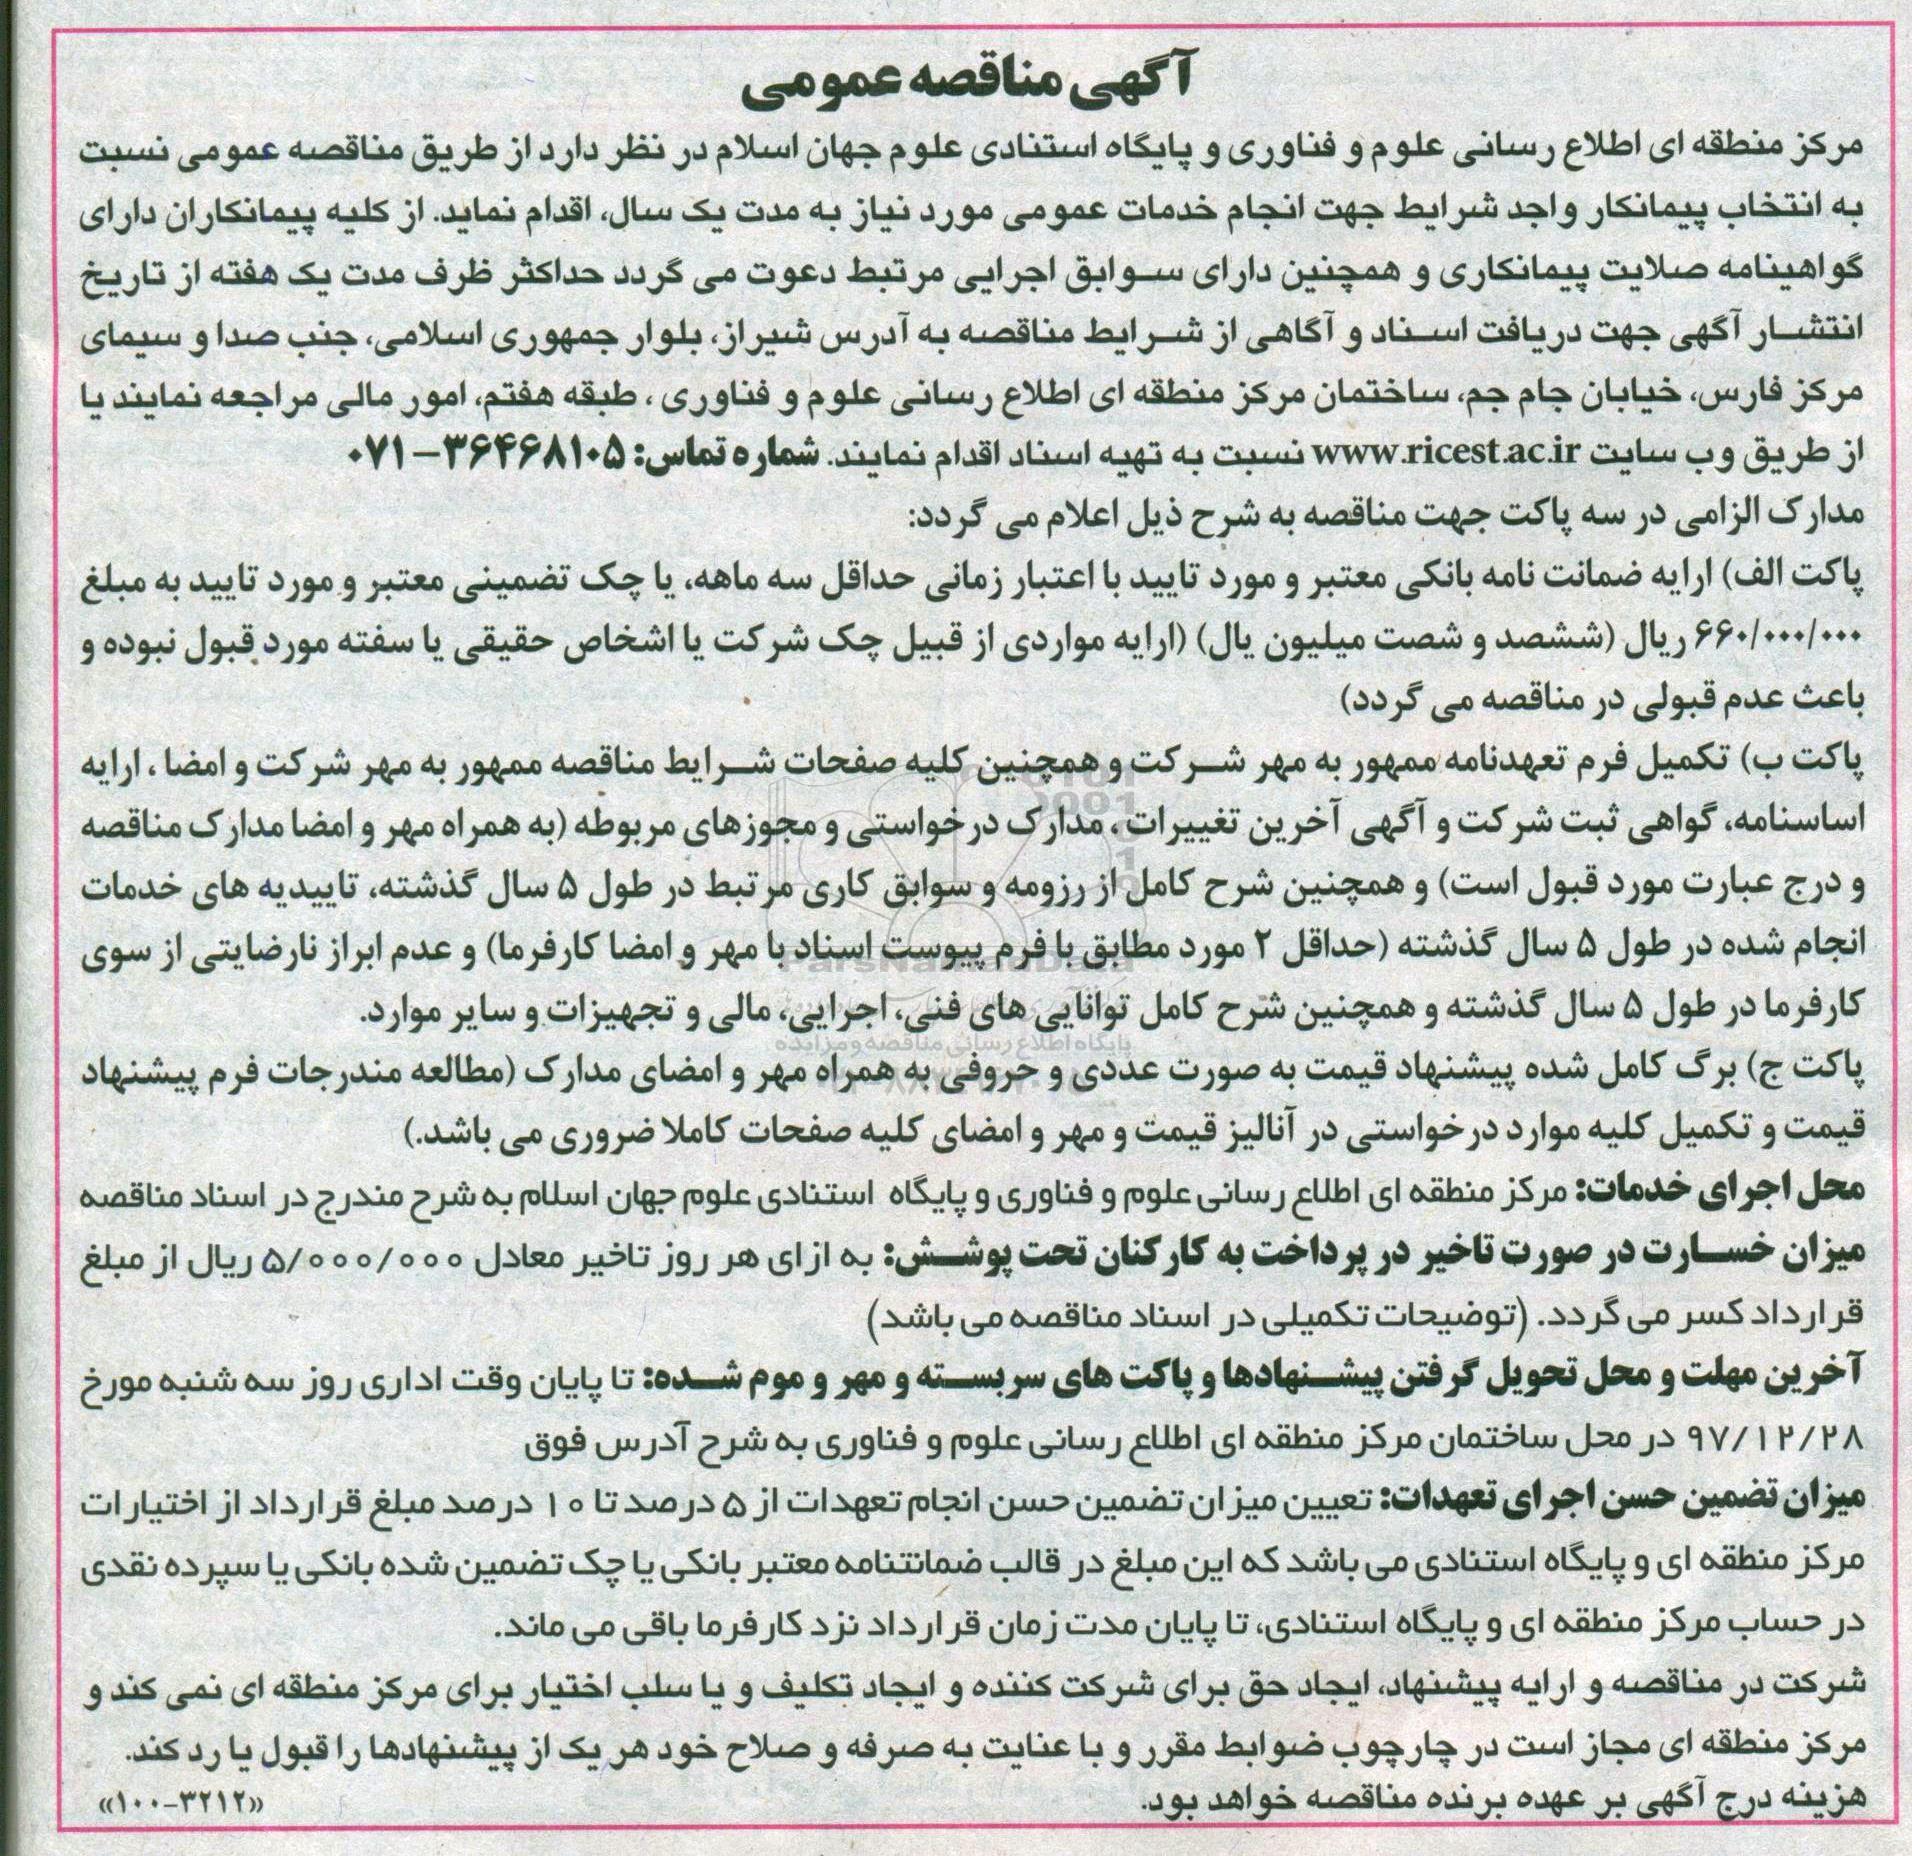 آگهی مناقصه عمومی
مرکز منطقه ای اطلاع رسانی علوم و فناوری و پایگاه استنادی علوم جهان اسلام در نظر دارد از طریق مناقصه عمومی نسبت
به انتخاب پیمانکار واجد شرایط جهت انجام خدمات عمومی مورد نیاز به مدت یک سال، اقدام نماید. از کلیه پیمانکاران دارای
گواهینامه صلایت پیمانکاری و همچنین دارای سوابق اجرایی مرتبط دعوت می گردد حداکثر ظرف مدت یک هفته از تاریخ
انتشار آگهی جهت دریافت اسناد و آگاهی از شرایط مناقصه به آدرس شیراز، بلوار جمهوری اسلامی، جنب صدا و سیمای
مرکز فارس، خیابان جام جم، ساختمان مرکز منطقه ای اطلاع رسانی علوم و فناوری ، طبقه هفتم، امور مالی مراجعه نمایند یا
از طریق وب سایت www.ricest.ac.ir نسبت به تهیه اسناد اقدام نمایند. شماره تماس: ۳۶۴۶۸۱۰۵-۰۷۱
مدارک الزامی در سه پاکت جهت مناقصه به شرح ذیل اعلام می گردد:
پاکت الف) ارایه ضمانت نامه بانکی معتبر و مورد تایید با اعتبار زمانی حداقل سه ماهه، یا چک تضمینی معتبر و مورد تایید به مبلغ
۶۶۰/۰۰۰/۰۰۰ ریال (ششصد و شصت میلیون یال) (ارایه مواردی از قبیل چک شرکت یا اشخاص حقیقی یا سفته مورد قبول نبوده و
باعث عدم قبولی در مناقصه می گردد)
پاکت ب) تکمیل فرم تعهدنامه ممهور به مهر شرکت و همچنین کلیه صفحات شرایط مناقصه ممهور به مهر شرکت و امضا ، ارایه
اساسنامه، گواهی ثبت شرکت و آگهی آخرین تغییرات ، مدارک درخواستی و مجوزهای مربوطه (به همراه مهر و امضا مدارک مناقصه
و درج عبارت مورد قبول است) و همچنین شرح کامل از رزومه و سوابق کاری مرتبط در طول ۵ سال گذشته، تاییدیه های خدمات
انجام شده در طول ۵ سال گذشته (حداقل ۲ مورد مطابق با فرم پیوست اسناد با مهر و امضا کارفرما) و عدم ابراز نارضایتی از سوی
کارفرما در طول ۵ سال گذشته و همچنین شرح کامل توانایی های فنی، اجرایی، مالی و تجهیزات و سایر موارد.
پایگاه اطلاع رسانی مناقصه و مزایده
پاکت ج) برگ کامل شده پیشنهاد قیمت به صورت عددی و حروفی به همراه مهر و امضای مدارک (مطالعه مندرجات فرم پیشنهاد
قیمت و تکمیل کلیه موارد درخواستی در آنالیز قیمت و مهر و امضای کلیه صفحات کاملا ضروری می باشد.)
محل اجرای خدمات: مرکز منطقه ای اطلاع رسانی علوم و فناوری و پایگاه استنادی علوم جهان اسلام به شرح مندرج در اسناد مناقصه
میزان خسارت در صورت تاخیر در پرداخت به کارکنان تحت پوشش: به ازای هر روز تاخیر معادل ۵/۰۰۰/۰۰۰ ریال از مبلغ
قرارداد کسر می گردد. (توضیحات تکمیلی در اسناد مناقصه می باشد)
آخرین مهلت و محل تحویل گرفتن پیشنهادها و پاکت های سربسته و مهر و موم شده: تا پایان وقت اداری روز سه شنبه مورخ
۹۷/۱۲/۲۸ در محل ساختمان مرکز منطقه ای اطلاع رسانی علوم و فناوری به شرح آدرس فوق
میزان تضمین حسن اجرای تعهدات: تعیین میزان تضمین حسن انجام تعهدات از ۵ درصد تا ۱۰ درصد مبلغ قرارداد از اختیارات
مرکز منطقه ای و پایگاه استنادی می باشد که این مبلغ در قالب ضمانتنامه معتبر بانکی یا چک تضمین شده بانکی یا سپرده نقدی
در حساب مرکز منطقه ای و پایگاه استنادی، تا پایان مدت زمان قرارداد نزد کارفرما باقی می ماند.
شرکت در مناقصه و ارایه پیشنهاد، ایجاد حق برای شرکت کننده و ایجاد تکلیف و یا سلب اختیار برای مرکز منطقه ای نمی کند و
مرکز منطقه ای مجاز است در چارچوب ضوابط مقرر و با عنایت به صرفه و صلاح خود هر یک از پیشنهادها را قبول یا رد کند.
هزینه درج آگهی بر عهده برنده مناقصه خواهد بود.
«۱۰۰-۳۲۱۲»